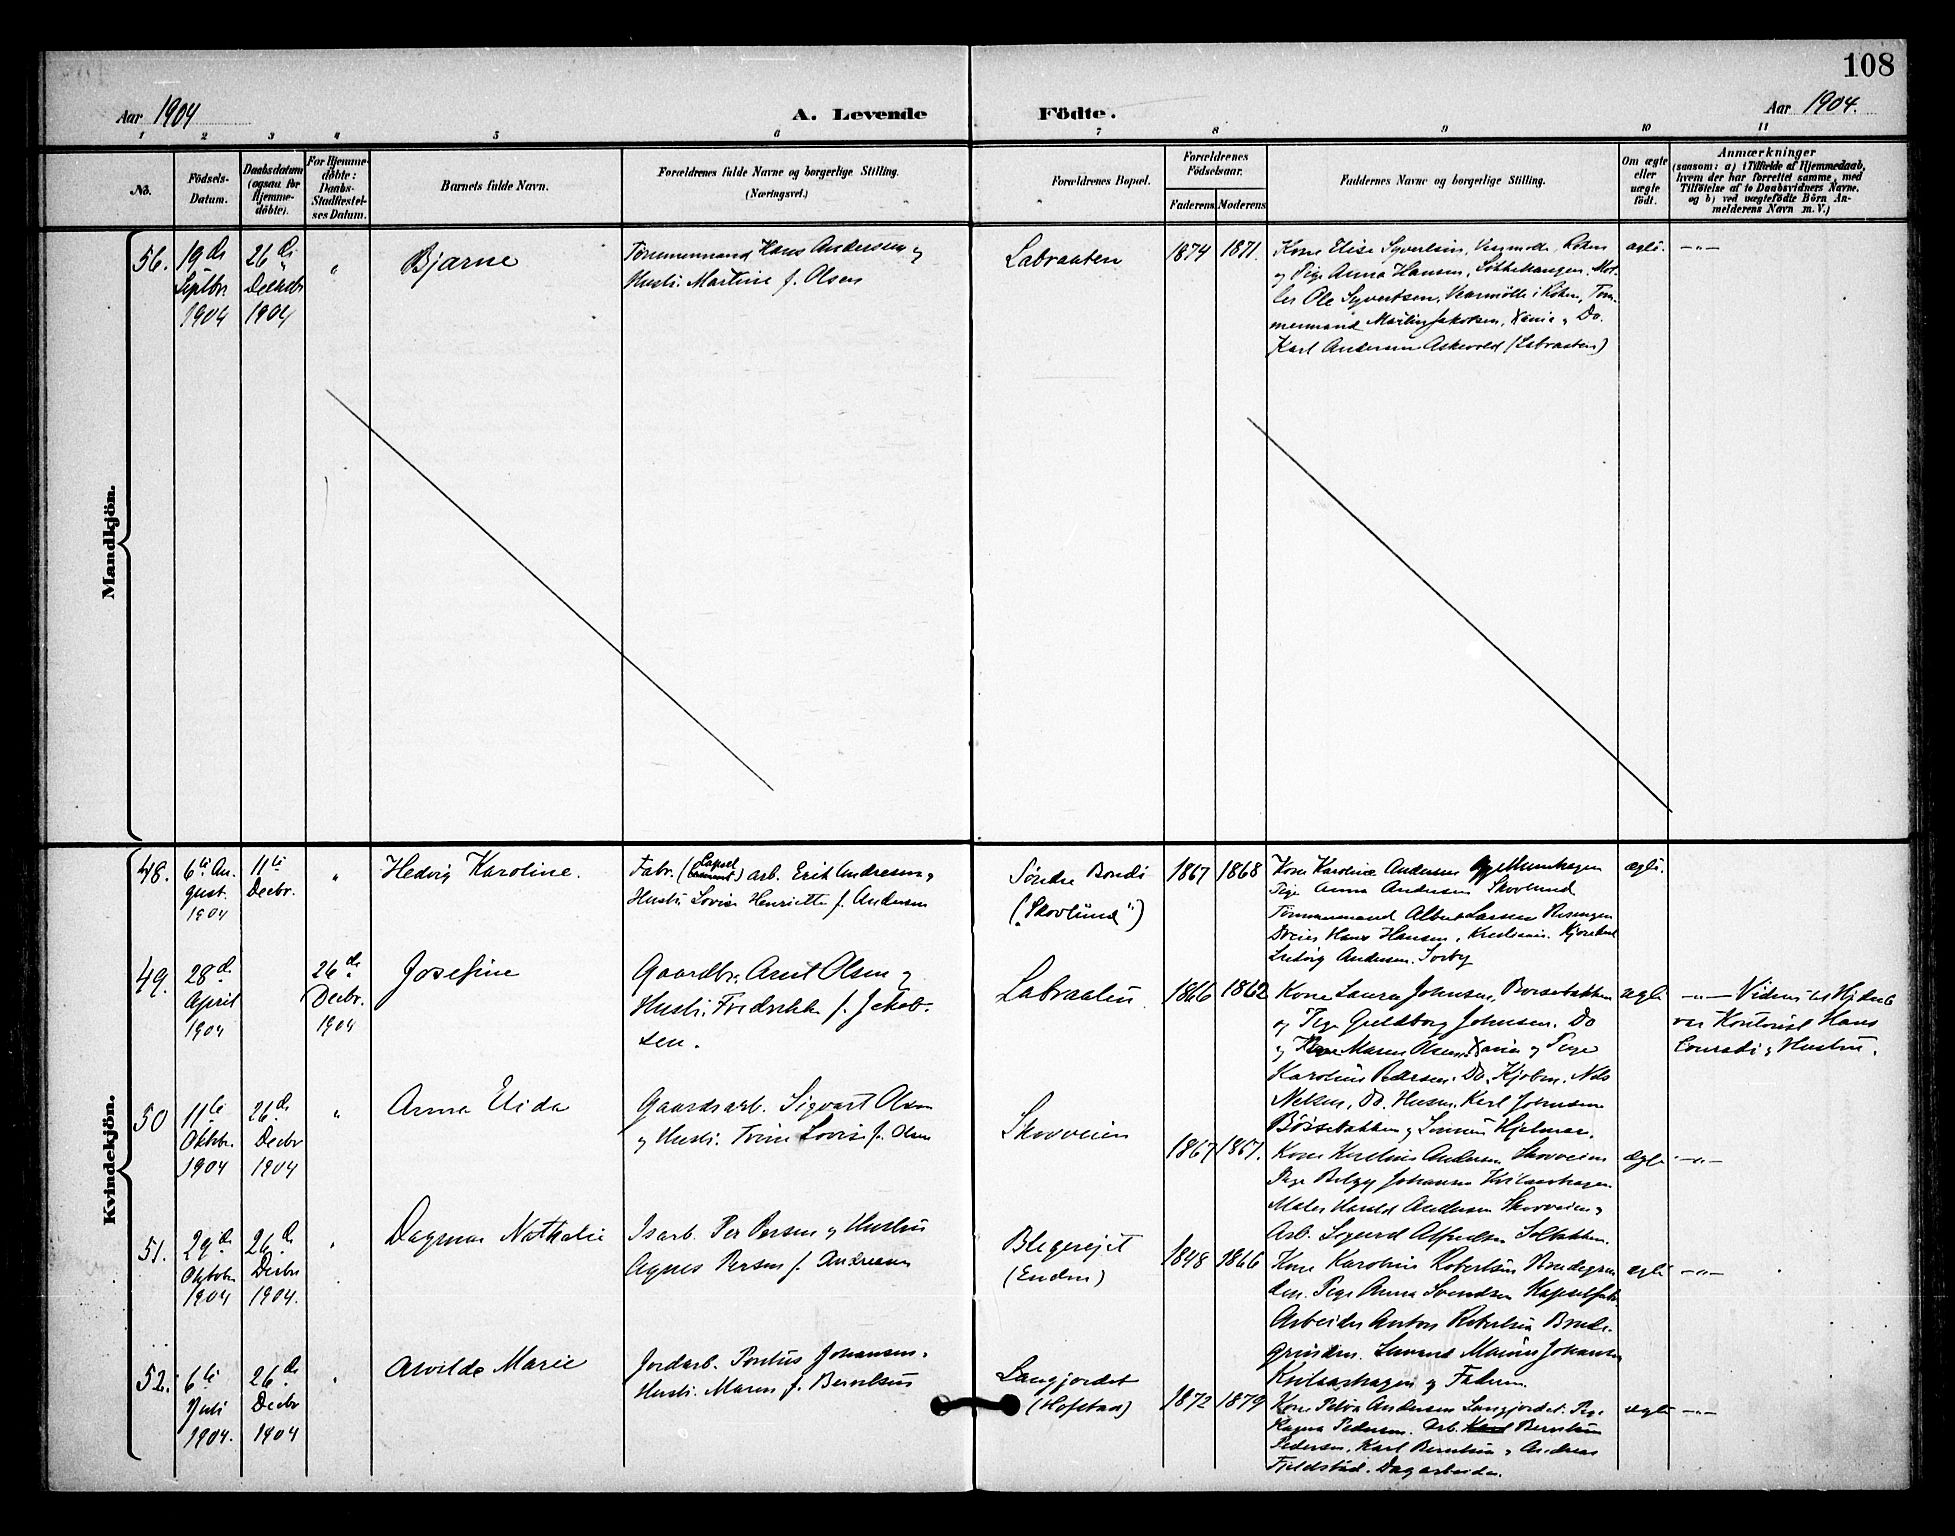 108
Aar 1904
A. Levende
Födte.
Aar 1904.
1 2 3 4 5 6 7 8 9 10 11
No.
Födsels-
Datum.
Daabsdatum
(ogsaa for
Hjemme-
döbte).
For Hjemme-
döbte:
Daabs-
Stadfæstel-
ses Datum.
Barnets fulde Navn.
Forældrenes fulde Navne og borgerlige Stilling.
(Næringsvei.)
Forældrenes Bopæl.
Forældrenes
Födselsaar.
Faderens
Moderens
Faddernes Navne og borgerlige Stilling.
Om ægte
eller
uægte
födt.
Anmærkninger
(saasom: a) i Tilfælde af Hjemmedaab,
hvem der har forrettet samme, med
Tilföielse af to Daabsvidners Navne,
og b) ved uægtefödte Börn An-
melderens Navn m. V.)
Mandkjön.
56.
19de
Septbr.
1904
26de
Decbr
1904
"
Bjarne
Tömmermand Hans Andersen og
Hustr. Martine f. Olsen
Labraaten
1874
1871.
Kone Elise Syvertsen,
og Pige Anna Hansen, Løkkehaugen.
Ole Syvertsen,
Karl Andersen Askevold (Labraaten)
ægte.
—"—
Kvindekjön.
48.
6te Au-
gust.
1904
11te
Decbr.
"
Hedvig Karoline.
Fabr. (Kapsel) arb. Erik Andresen og
Hustr. Lovise Henriette f. Andersen
Søndre Bondi
("Skovlund")
1867
1868
Kone Karoline Andersen
Pige Anna Andersen Skovlund
Tömmermand Albert Larsen Risengen
Dreier Hans Hansen, Kristiania.
Ludvig Andersen.
ægte.
49.
28de
April
1904
26de
Decbr.
1904
Josefine
Gaardbr. Arnt Olsen og
Hustr. Fredrikke f. Jakob-
sen.
Labraaten
1866
1862
Kone Laura Johnsen, Børsebakken
og Pige Guldborg Johnsen. Do
og Kone Maren Olsen, Xania og Pige
Karoline Pedersen. Do. Kjøbm. Nils
Nelsen, Do. Husm. Karl Johnsen
Børsebakken og Hjelmar.
ægte
—"— Vidne til Hjdaab
var Kontorist Hans
Conradi og Hustru.
50
11te
Oktbr.
1904
26de
Decbr
1904
"
Anna Elida
Gaardsarb. Sigvart Olsen
og Hustr. Trine Lovise f. Olsen
Skovveien
1867
1867.
Kone Andersen Skovveien
Pige Johansen
Maler Harald Andersen Skovveien og
Arb. Sigurd Alfredsen Solbakken.
ægte
—"—
51.
29de
Oktober
1904
26de
Decbr
1904.
"
Dagmar Nathalie
Isarb. Per Persen og Hustru
Agnes Persen f. Andresen
Blegerejet
(Enden)
1848
1866
Kone Karoline Robertsen
Pige Anna Svendsen Kapselfabr.
Arbeider Anton Robertsen
Johansen
og Faderen.
ægte
—"—
52.
6te
Juli
1904.
26de
Decbr
1904
"
Asvilde Marie
Jordarb. Pontus Johansen og
Hustr. Maren f. Berntsen
Langjordet
(Hofstad)
1872
1879
Kone Andersen Langjordet. Pige
Ragna Pedersen. Arb. Berntsen
Pedersen, Karl Berntsen og Andreas
Fjeldstad. Dagarbeider.
ægte
—"—